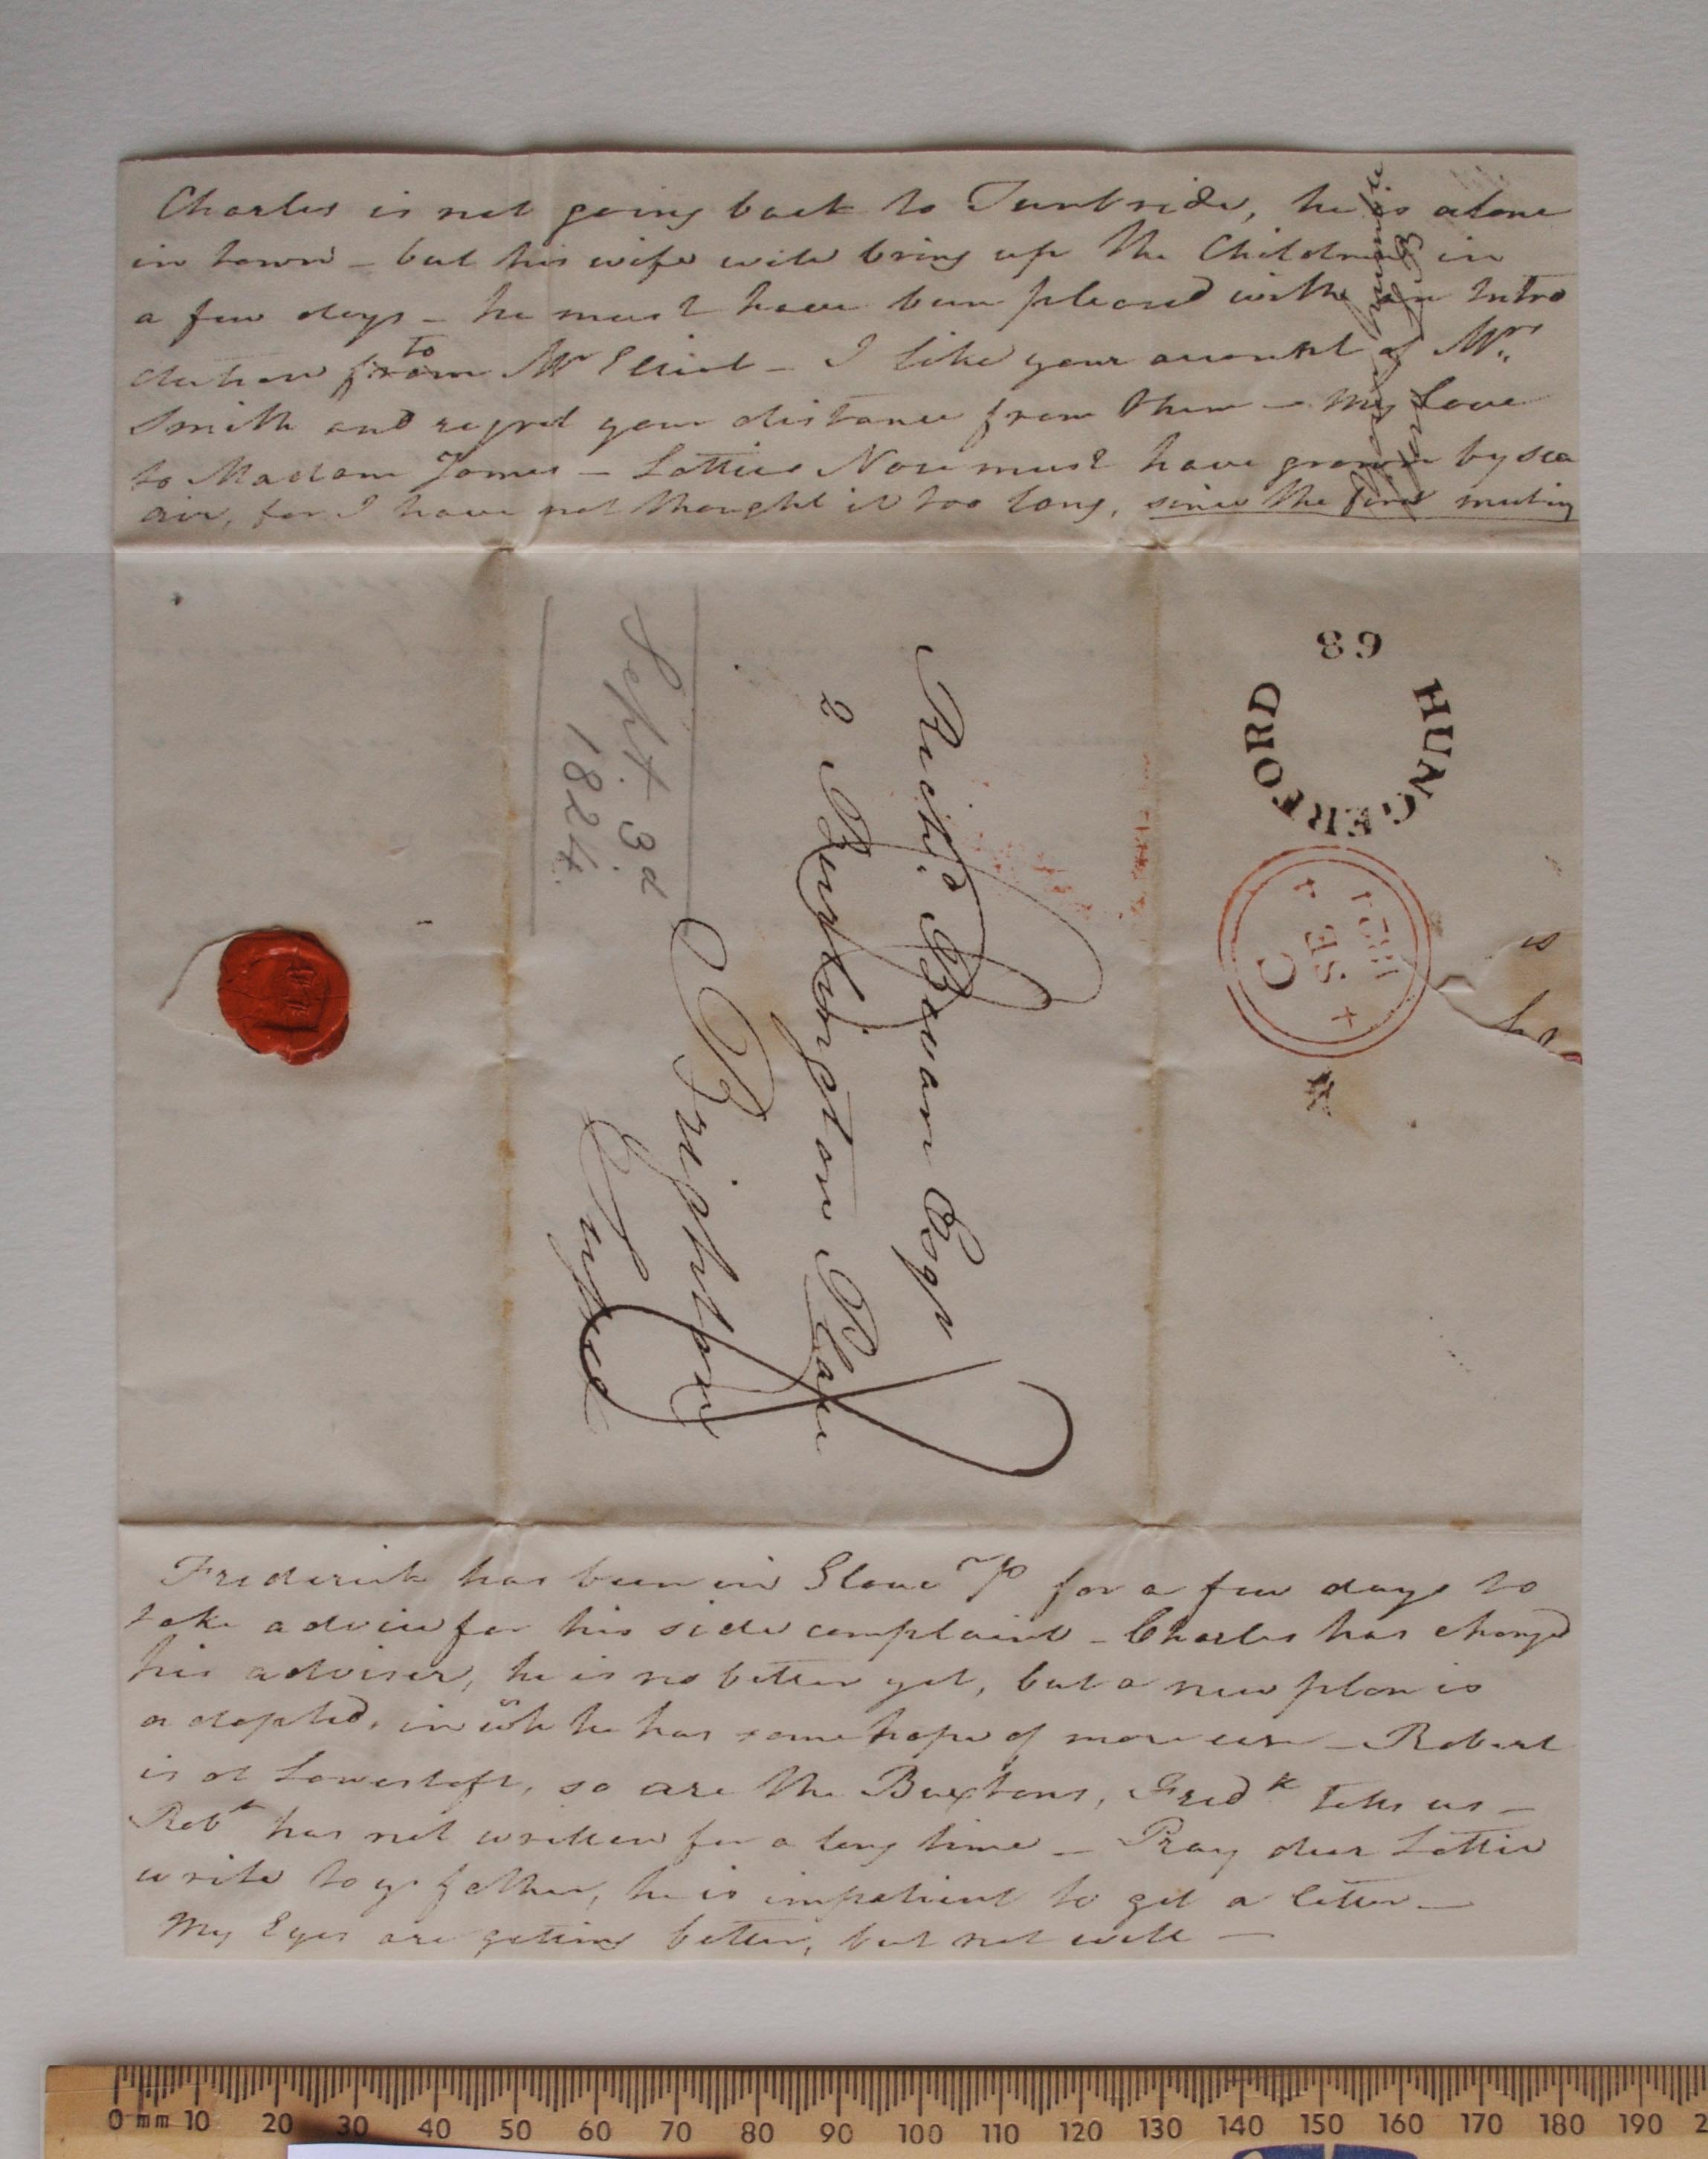 Charles is not going back to Tunbride, he is alone
in town - but his wife will bring up the Children in
a few days - he must have been pleased with an Intro
duction from to Mr Elliot - I like your account of Mrs
Smith and regret your distance from them - My Love
to Madam Jones - Lotties Nose must have grown by sea
air, for I have not thought it too long, since the first meeting
68
HUNGERFORD
C
SE
1824
Richd. Bevan Esqr
2 Burlington Place
Brighton
Single
Sept. 3d
1824.
Frederick has been in Glouc Pl for a few days to
take advice for his side complaint - Charles has changed
his adviser, he is no better yet, but a new plan is
adopted, in wh he has some hope of more use - Robert
is at Lowestoft, so are the Buxtons, Fredk tells us -
Robt has not written for a long time - Pray dear Lottie
write to yr father, he is impatient to get a letter -
My Eyes are getting better, but not well -
0 mm 10 20 30 40 50 60 70 80 90 100 110 120 130 140 150 160 170 180 190 2